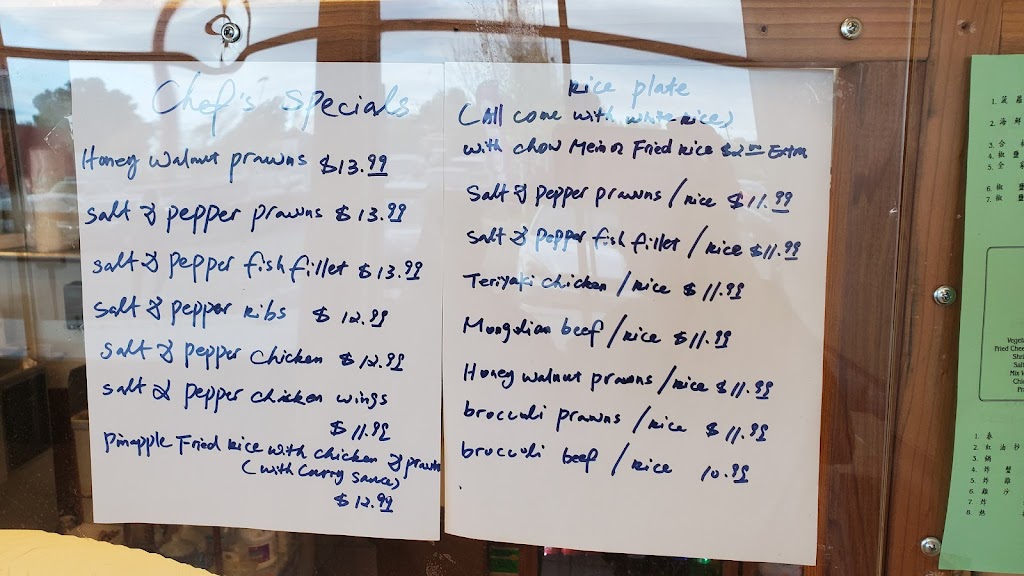 Chef's Specials
Honey Walnut prawns $13.99
Salt & pepper prawns $13.99
Salt & pepper fish fillet $13.99
Salt & pepper Ribs $12.99
Salt & pepper chicken $12.99
Salt & pepper chicken wings
$11.99
Pineapple Fried Rice with chicken & prawns
(with Curry Sauce)
$12.99
Rice plate
(All come with white rice)
with chow Mein or Fried Rice $2.00 Extra
Salt & pepper prawns / rice $11.99
Salt & pepper fish fillet / Rice $11.99
Teriyaki chicken / Rice $11.99
Mongolian beef / rice $11.99
Honey walnut prawns / rice $11.99
broccoli prawns / rice $11.99
broccoli beef / rice 10.99
1. 菠 蘿
2. 海 鮮
3. 合
4. 椒 鹽
5. 全
6. 椒 鹽
7. 椒
Fried Chee
Salt
Mix V
1. 春
2. 紅 油 抄
3. 鍋
4. 炸 蟹
5. 炸
6. 雞 沙
7. 炸
8. 熱